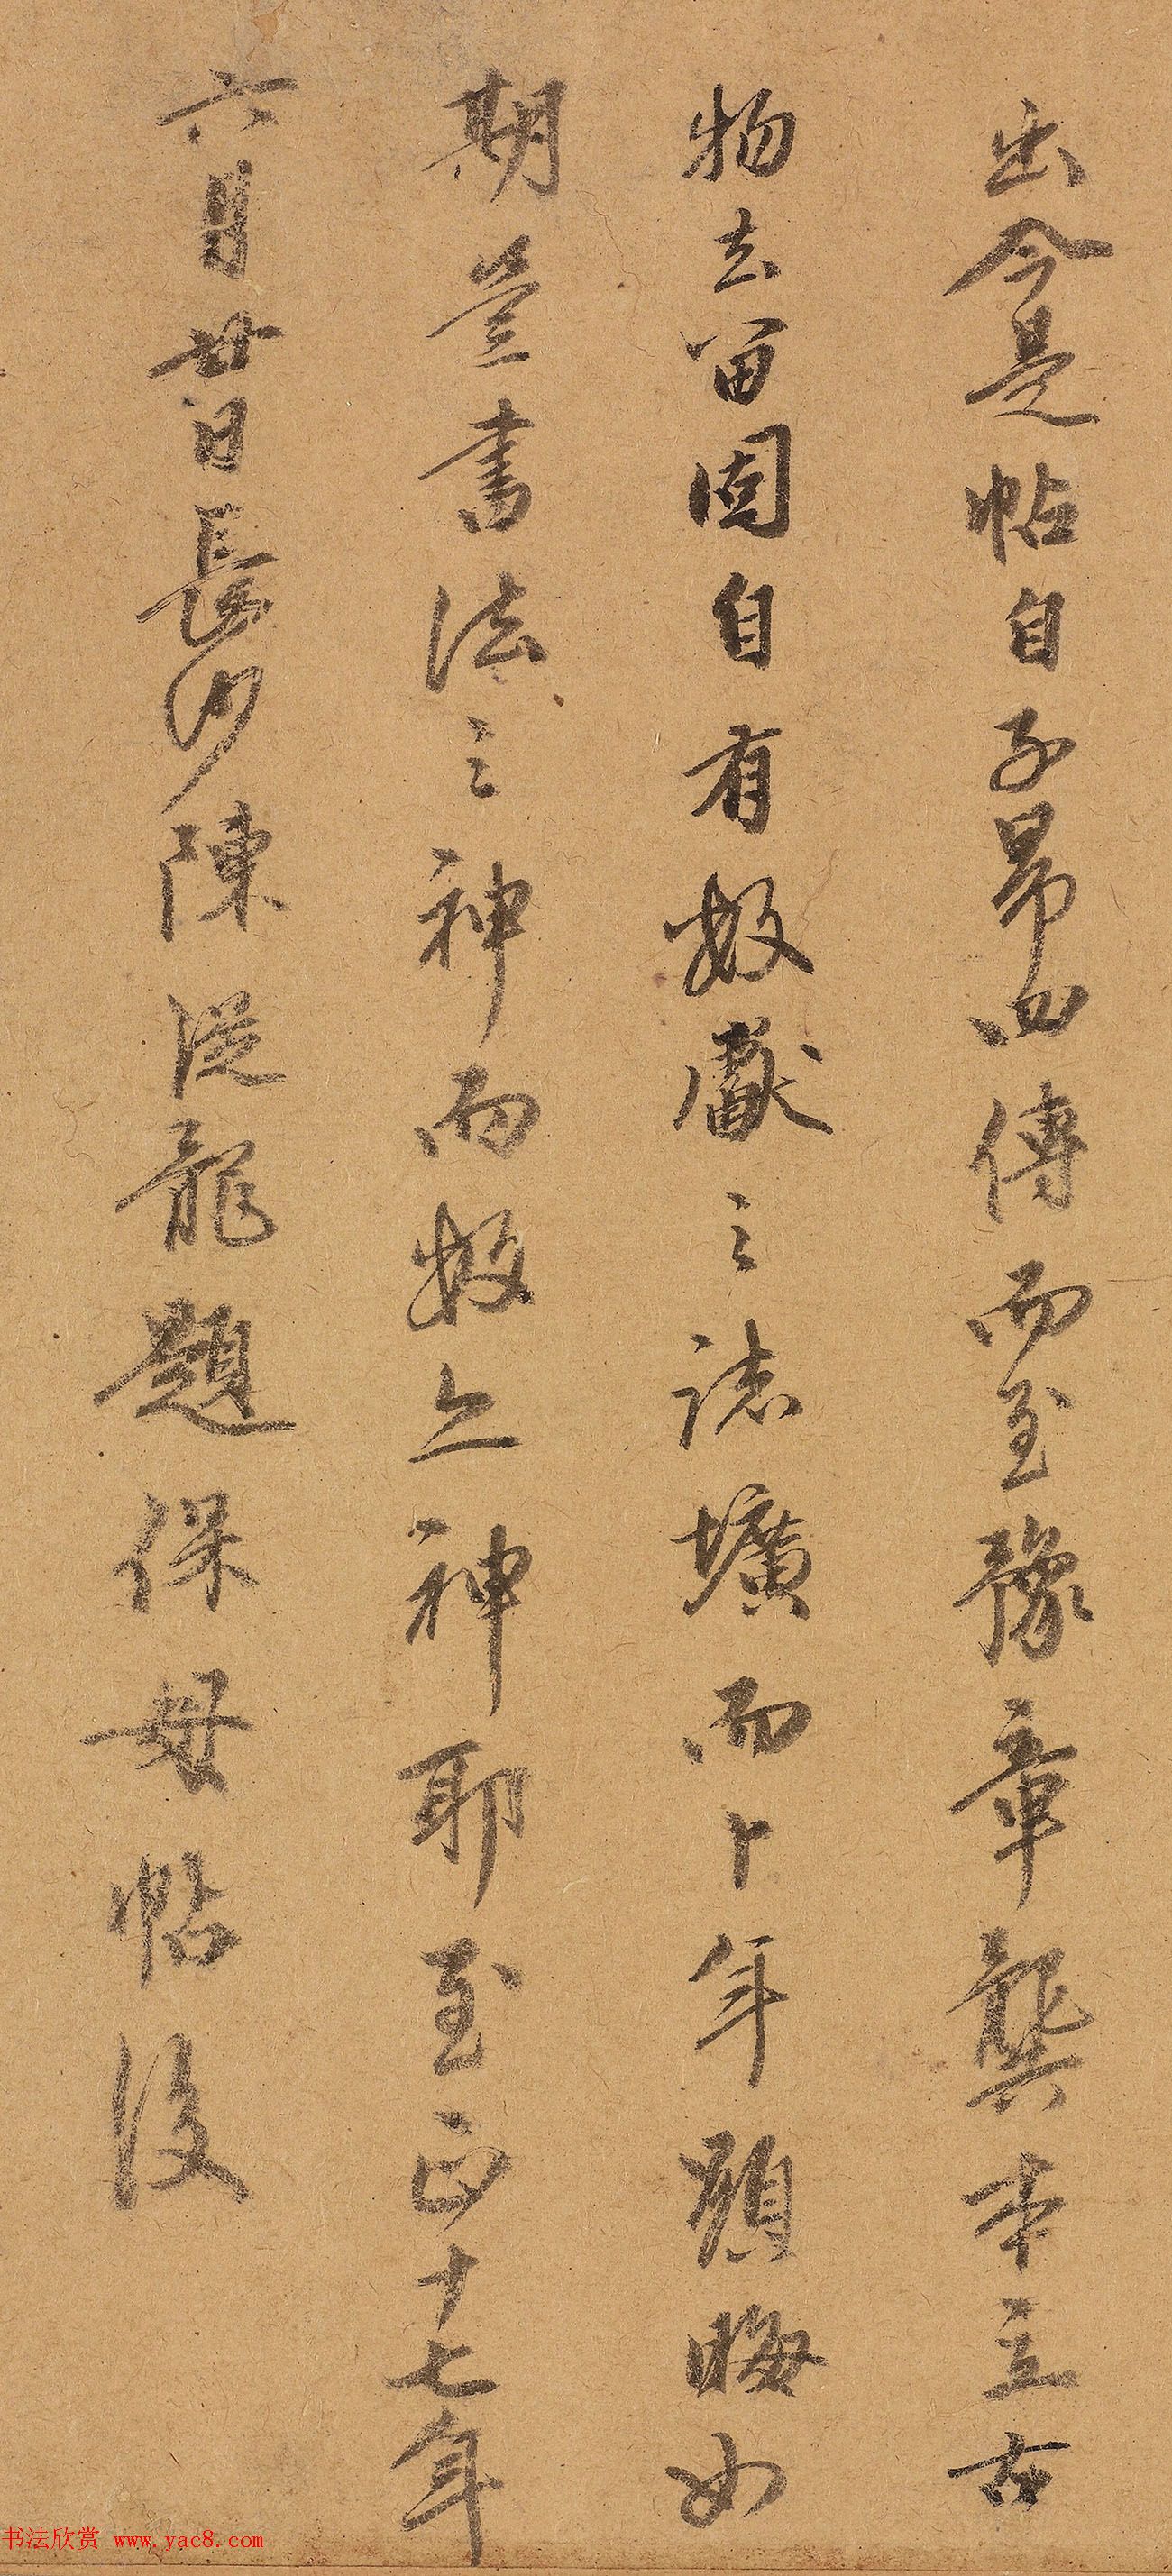 出今是帖自子昂四傳而至豫章龔本立古
物去留固自有數獻之誌壙而卜年顯晦如
期豈書法之神而數之神耶至正十七年
六月廿日長沙陳從龍題保母帖後
书法欣赏 www.yac8.com